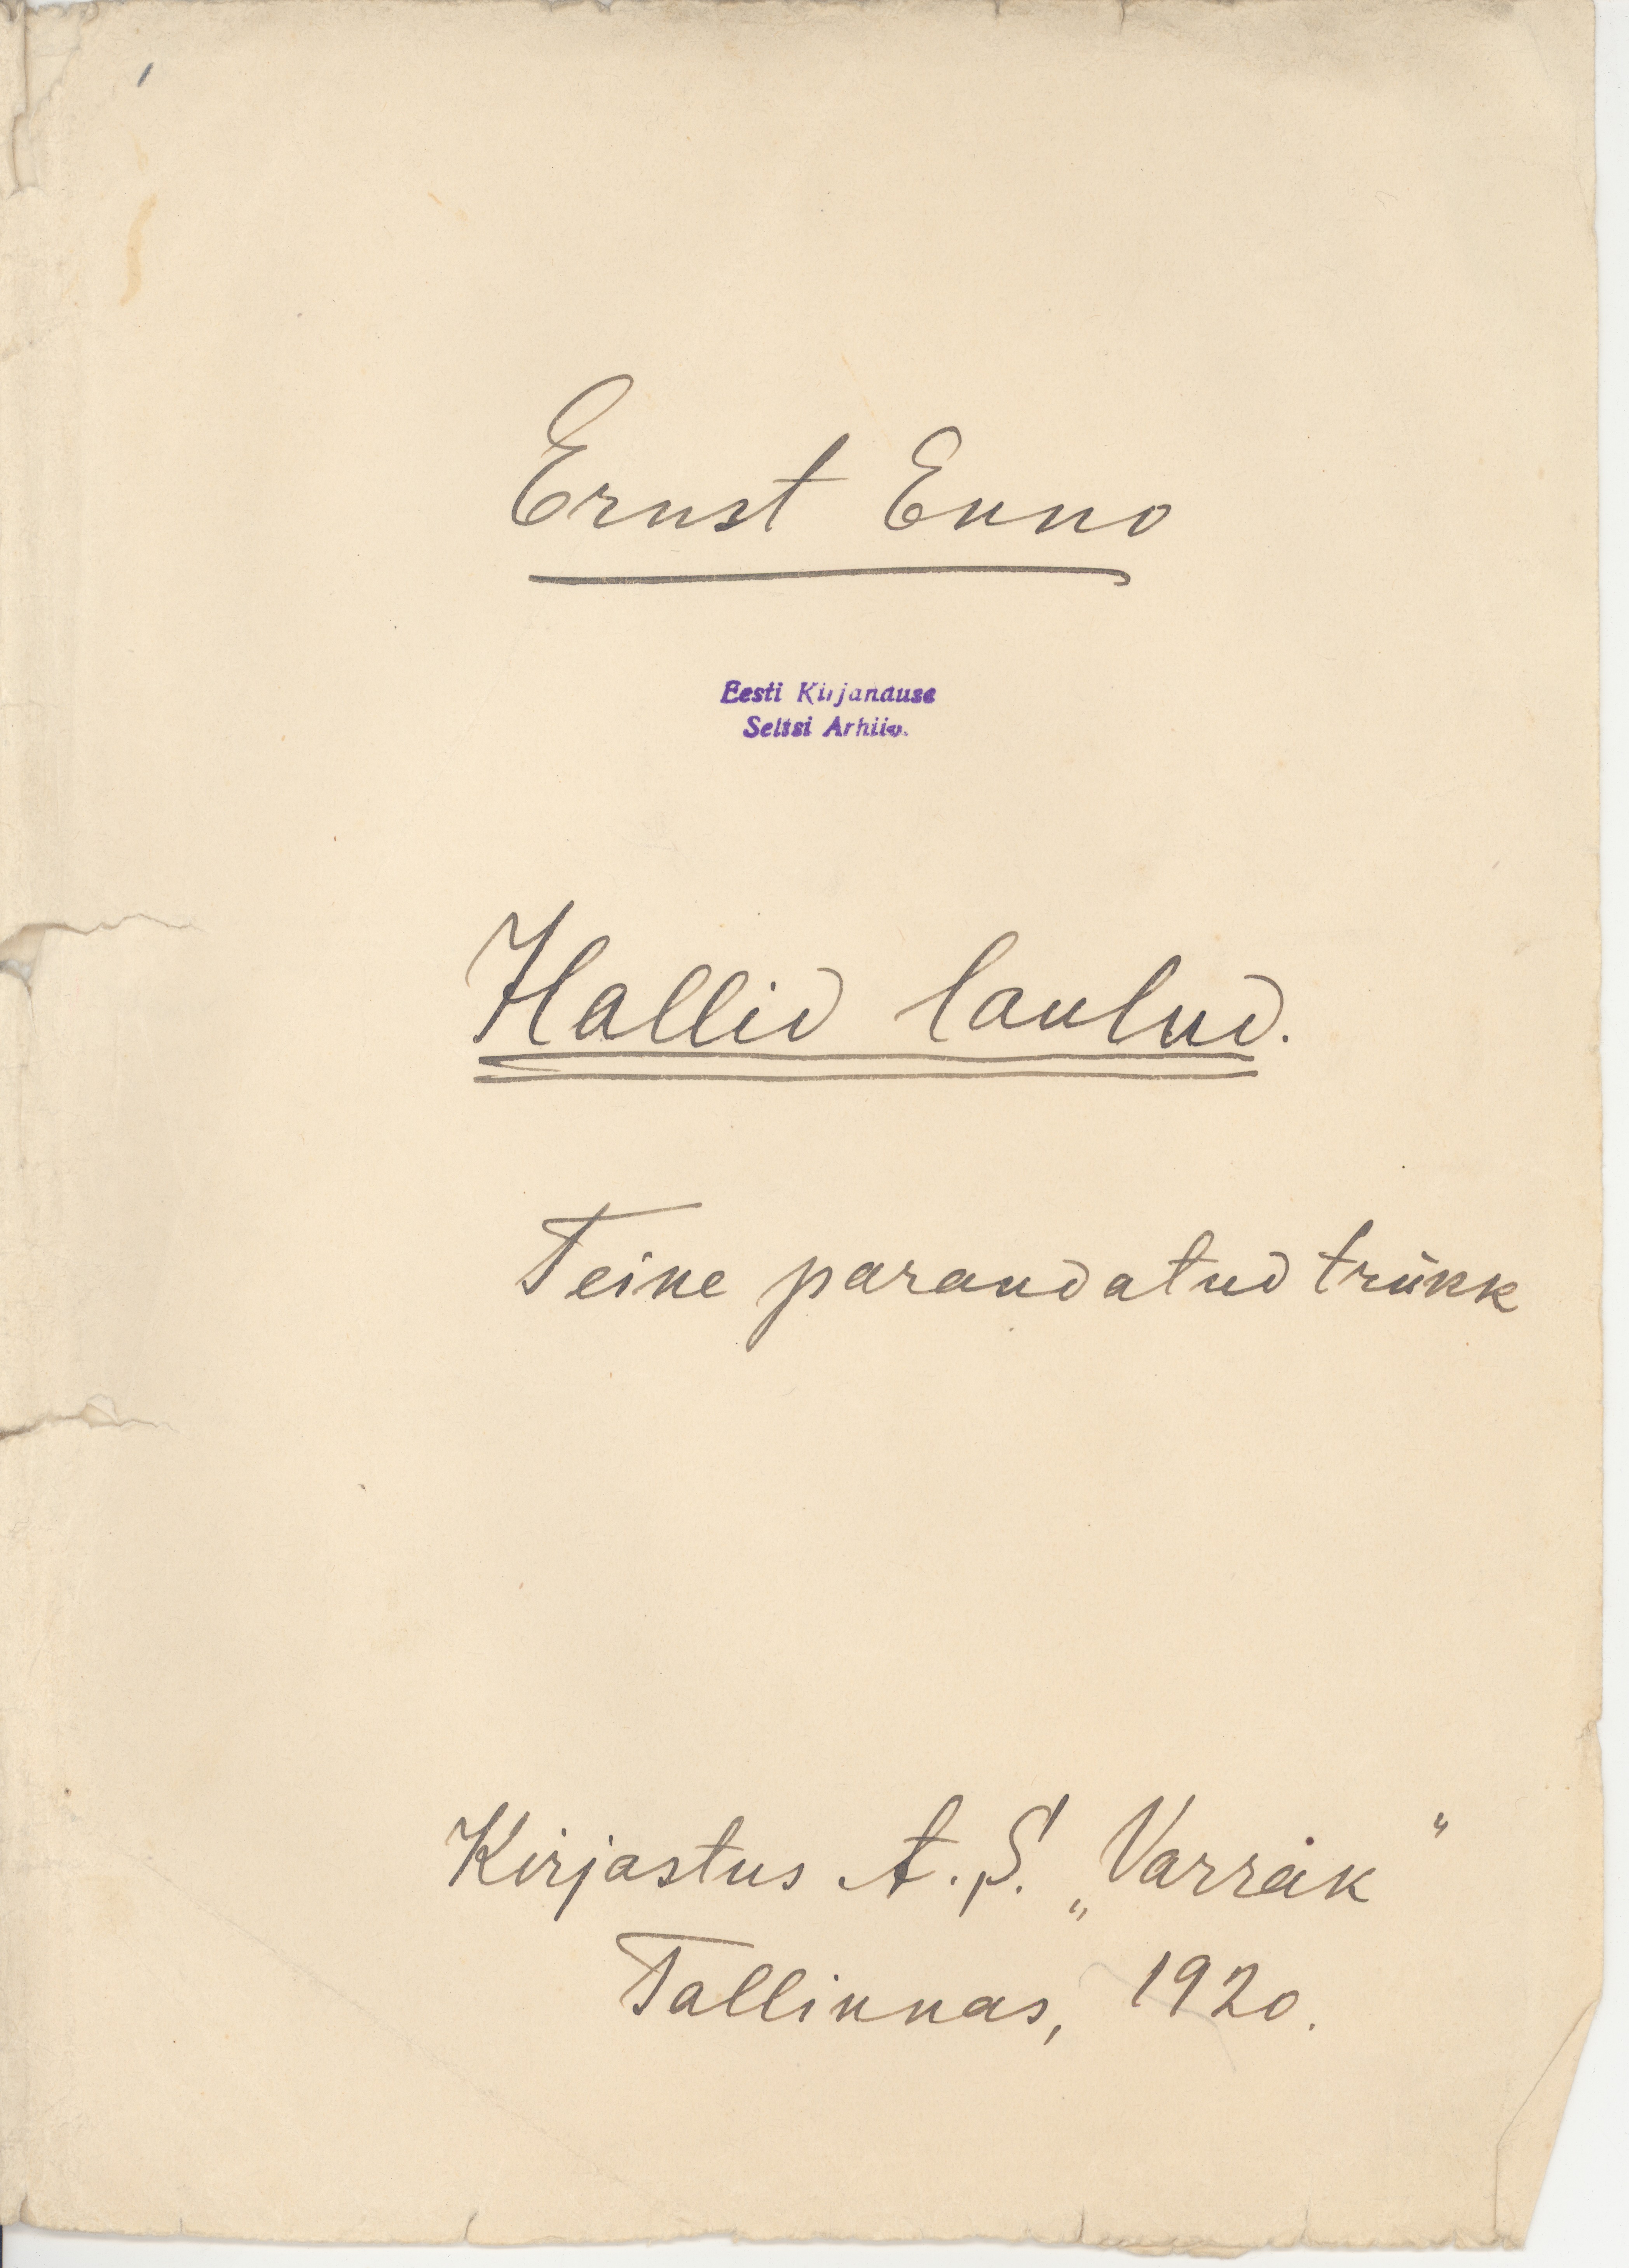 Ernst Enno
Eesti Kirjanduse
Seltsi Arhiiv.
Hallid laulud.
Teine parandatud trükk
Kirjastus A.S. „Varrak“
Tallinnas, 1920.